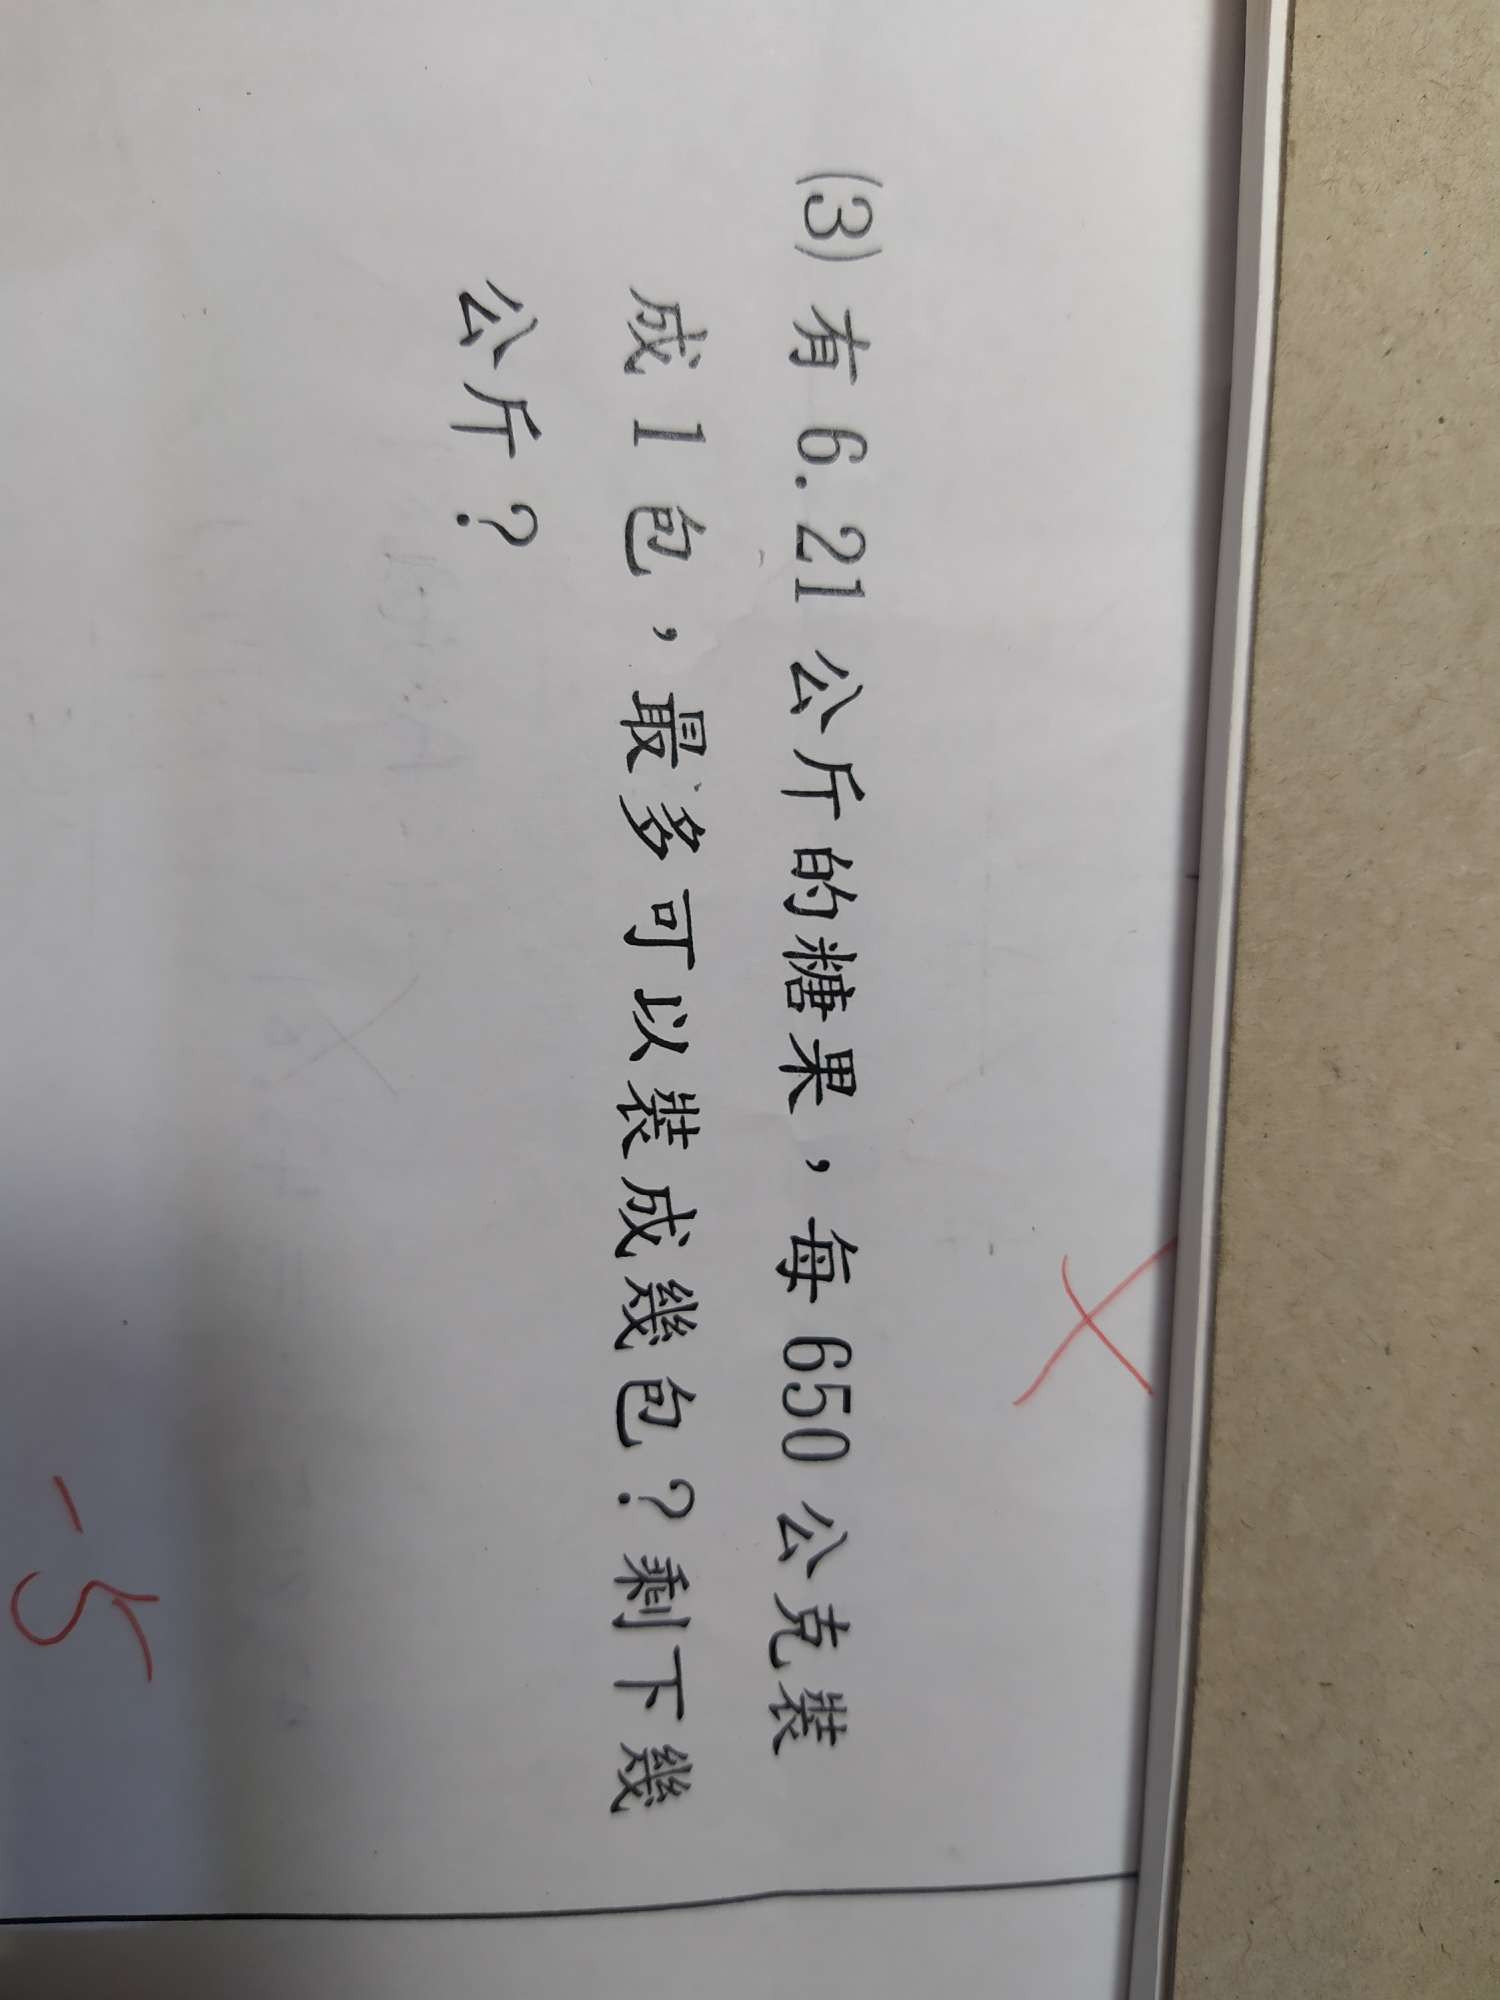 (3) 有 6.21 公斤的糖果，每 650 公克裝
成 1 包，最多可以裝成幾包？剩下幾
公斤？
-5